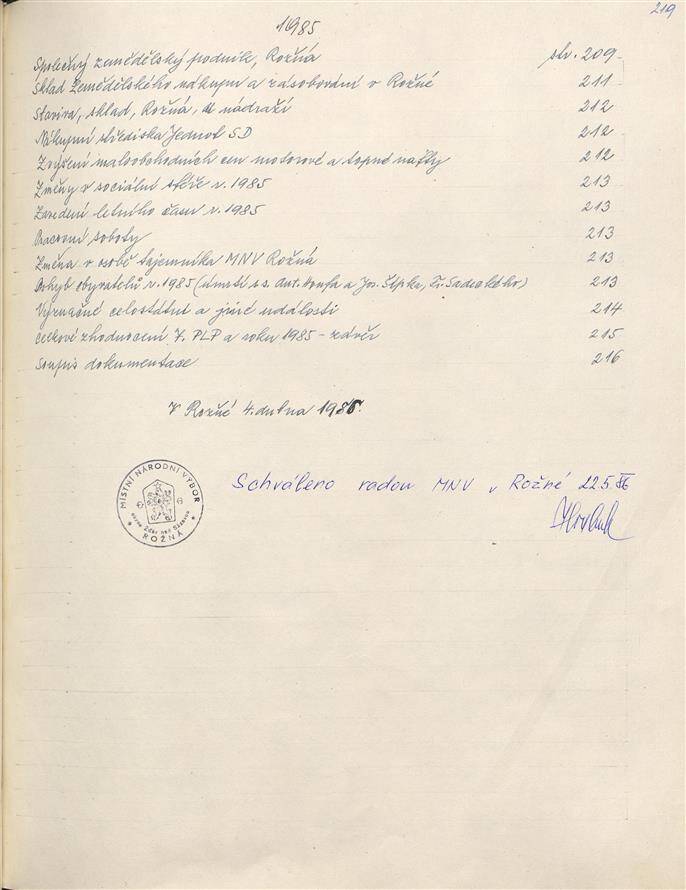 219
1985
Společný zemědělský podnik, Rožná str. 209
Sklad Zemědělského nákupu a zásobování v Rožné 211
Staviva, sklad, Rožná, nádraží 212
Nákupní střediska Jednot SD 212
Zvýšení maloobchodních cen motorové a topné nafty 212
Změny v sociální sféře r. 1985 213
Zavedení letního času r. 1985 213
Pracovní soboty 213
Změna v osobě tajemníka MNV Rožná 213
Pohyb obyvatelů r. 1985 (úmrtí s.s. Ant. a Jos. Štipka, Fr. Sadeckého) 213
Význačné celostátní a jiné události 214
Celkové zhodnocení 7. PLP a roku 1985 - závěr 215
Soupis dokumentace 216
V Rožné 4. dubna 1986.
MÍSTNÍ NÁRODNÍ VÝBOR
okres Žďár nad Sázavou
ROŽNÁ
Schváleno radou MNV v Rožné 22.5.86